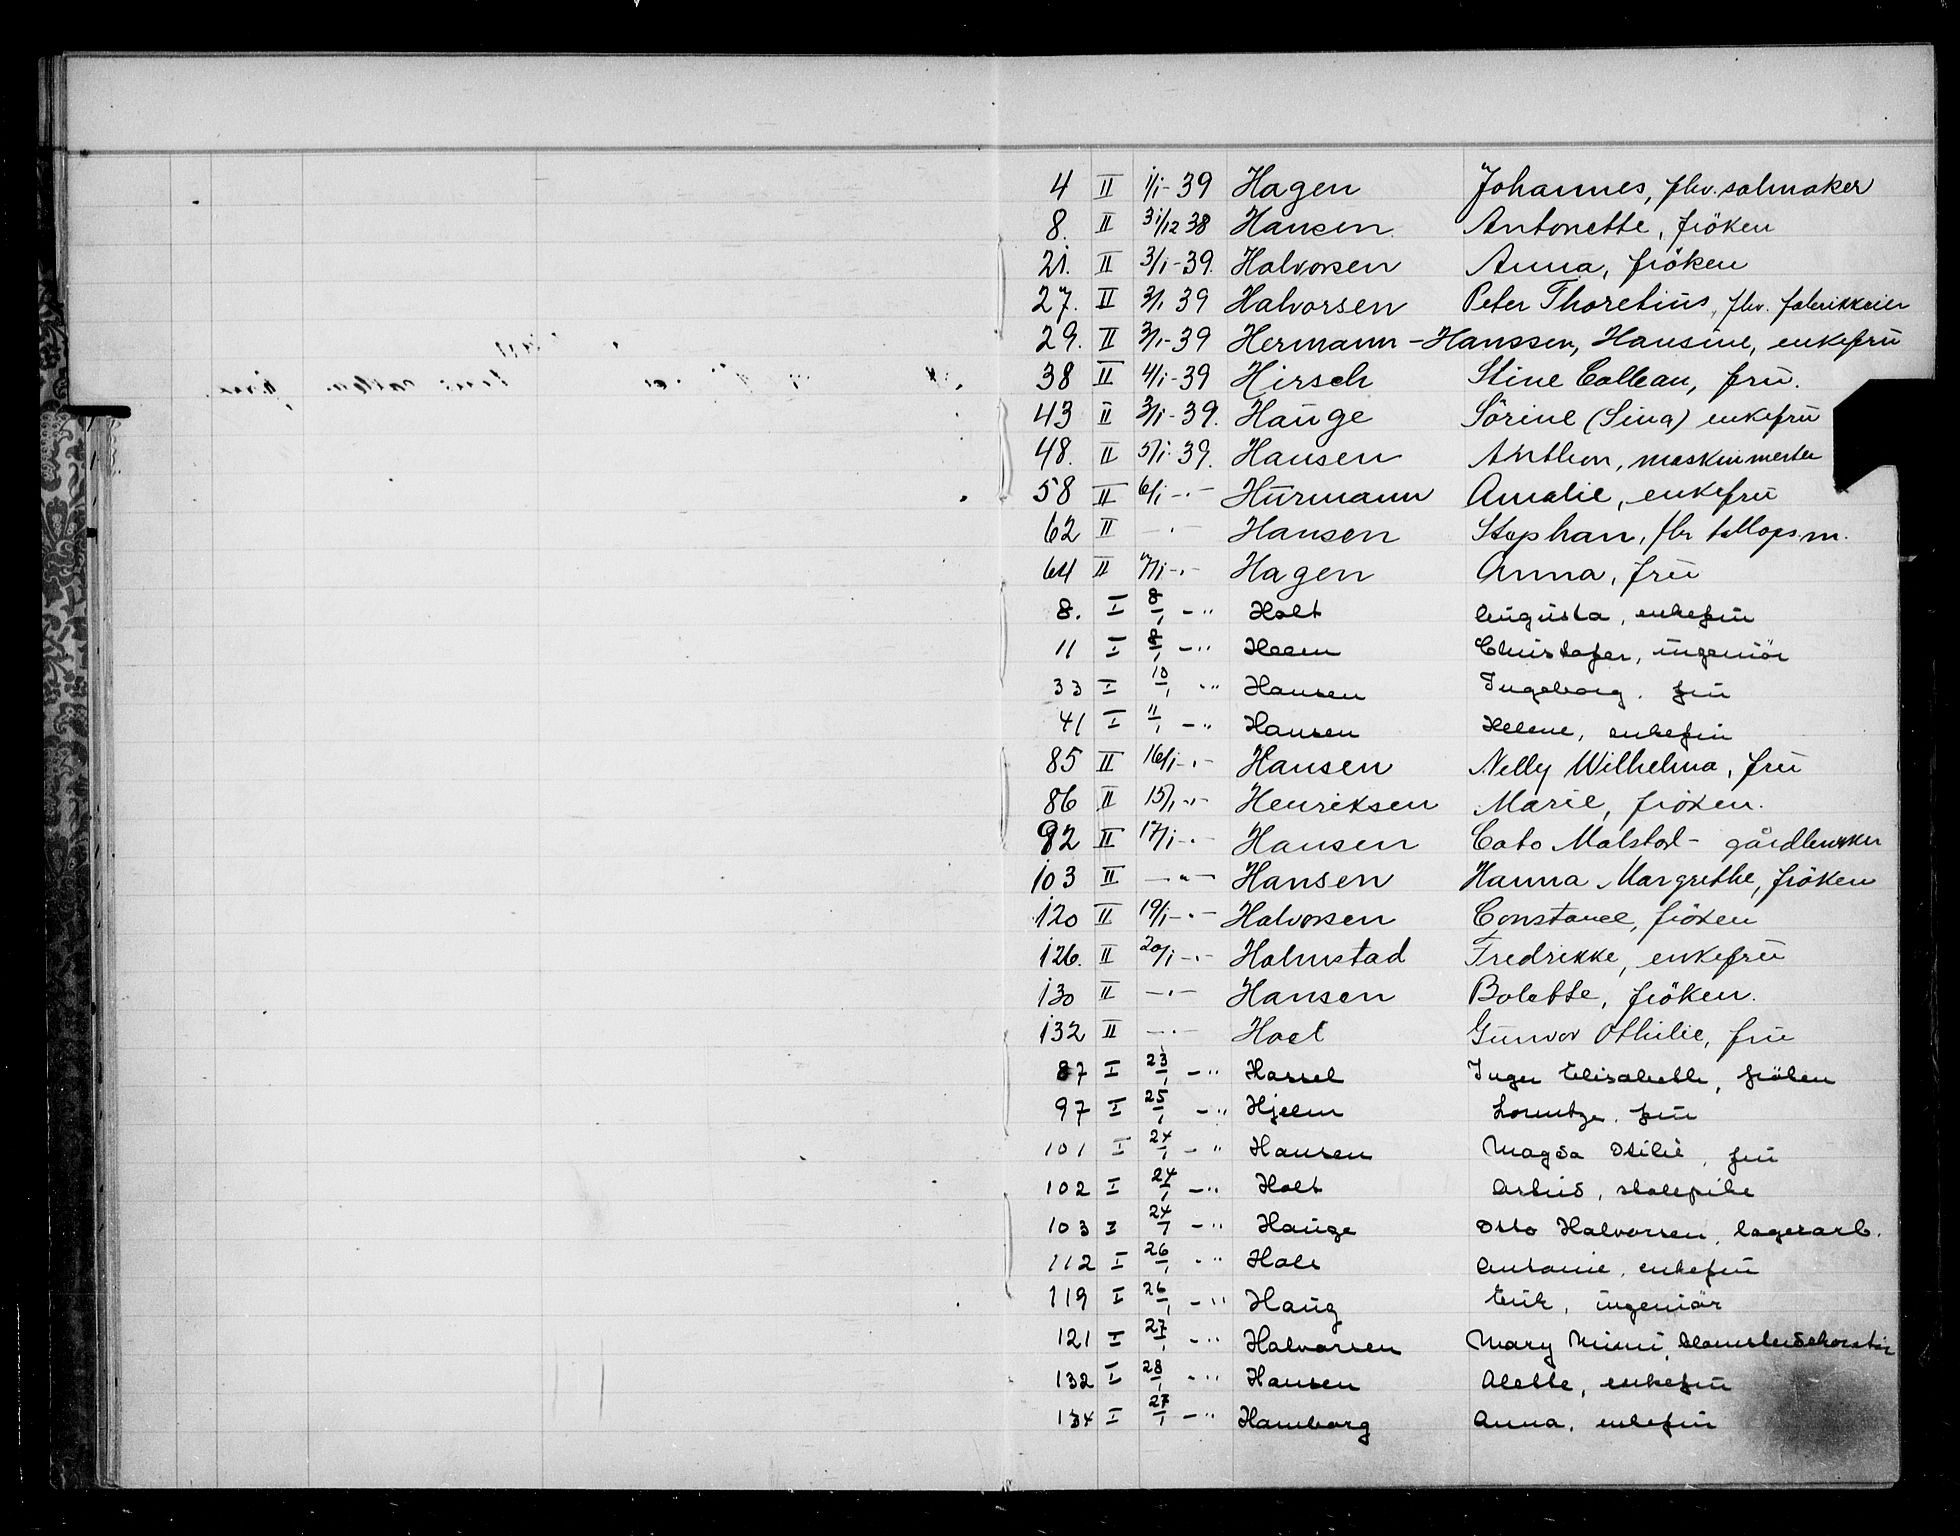 4 II 1/1-39 Hagen Johannes, fhv. salmaker
8. II 31/12 38 Hansen Antonette, fröken
21. II 3/1-39. Halvorsen Anna, fröken
27. II 3/1 39 Halvorsen Peter Thoretius, fhv. fabrikkeier
29. II 3/1-39 Hermann-Hanssen, Hansine, enkefrü
38 II 4/1-39 Hirsch Stine Colleau, frü.
43 II 3/1-39. Haüge Sörine (Sina) enkefrü
48. II 5/1-39. Hansen Anthon, maskinmester
58 II 6/1 -"- Hürmann Amalie, enkefrü
62 II -"- Hansen Stephan, fhv tollops.m.
64 II 7/1 -"- Hagen Anna, frü
8. I 8/1 -" Holt Aügüsta, enkefrü
11 I 8/1 -" Heem Christofer, ingeniör
33 I 10/1 -" Hansen Ingeborg. frü
41 I 11/1 -" Hansen Helene, enkefrü
85 II 16/1 -"- Hansen Nelly Wilhelma, frü
86 II 15/1 -"- Henriksen Marie, fröken.
92 II 17/1 -"- Hansen Cato Malstad- gårdbruker
103 II -"- Hansen Hanna Margrethe, fröken
120 II 19/1 -"- Halvorsen Constance, fröken
126. II 20/1 -"- Holmstad Fredrikke, enkefrü
130 II -"- Hansen Bolette, fröken.
132 II -"- Hoel Günvor Othilie, frü
87 I 23/1 -" Hassel Inger Elisabeth, fröken
97 I 25/1 -" Hjelm Lorentze. frü
101 I 24/1 -" Hansen Magda Otilie, frü
102 I 24/1 -" Holt Astrid, skolepike
103 I 24/1 -" Haüge Otto Halvorsen, lagerarb.
112 I 26/1 -" Hals Antonie, enkefrü
119 I 26/1 -" Haüg Erik, ingeniör
121 I 27/1 -" Halvorsen Mary Mimi,
132 I 28/1 -" Hansen Alette, enkefrü
134 I 27/1 -" Hamborg Anna, enkefrü